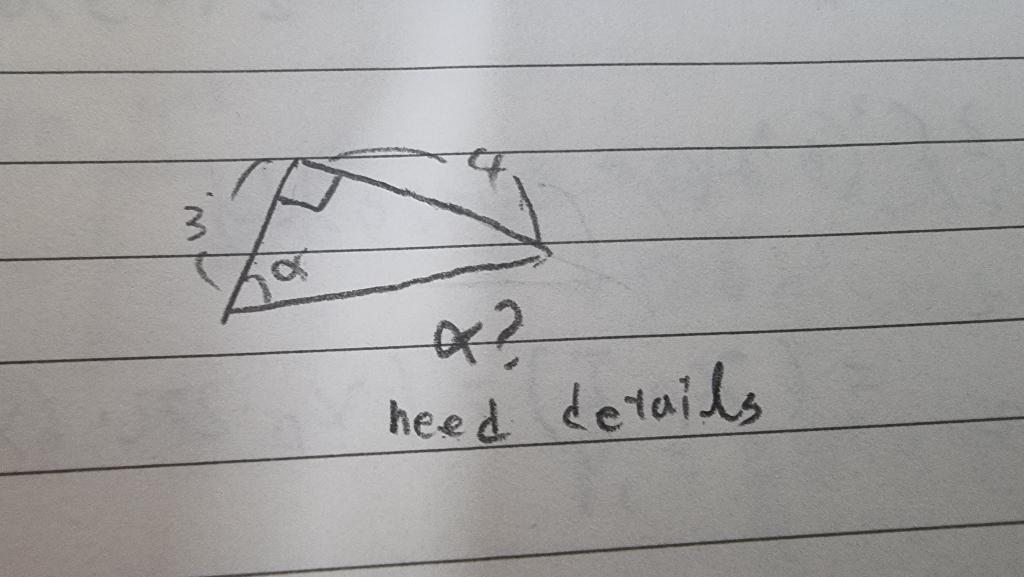 4
3
α
α?
need details